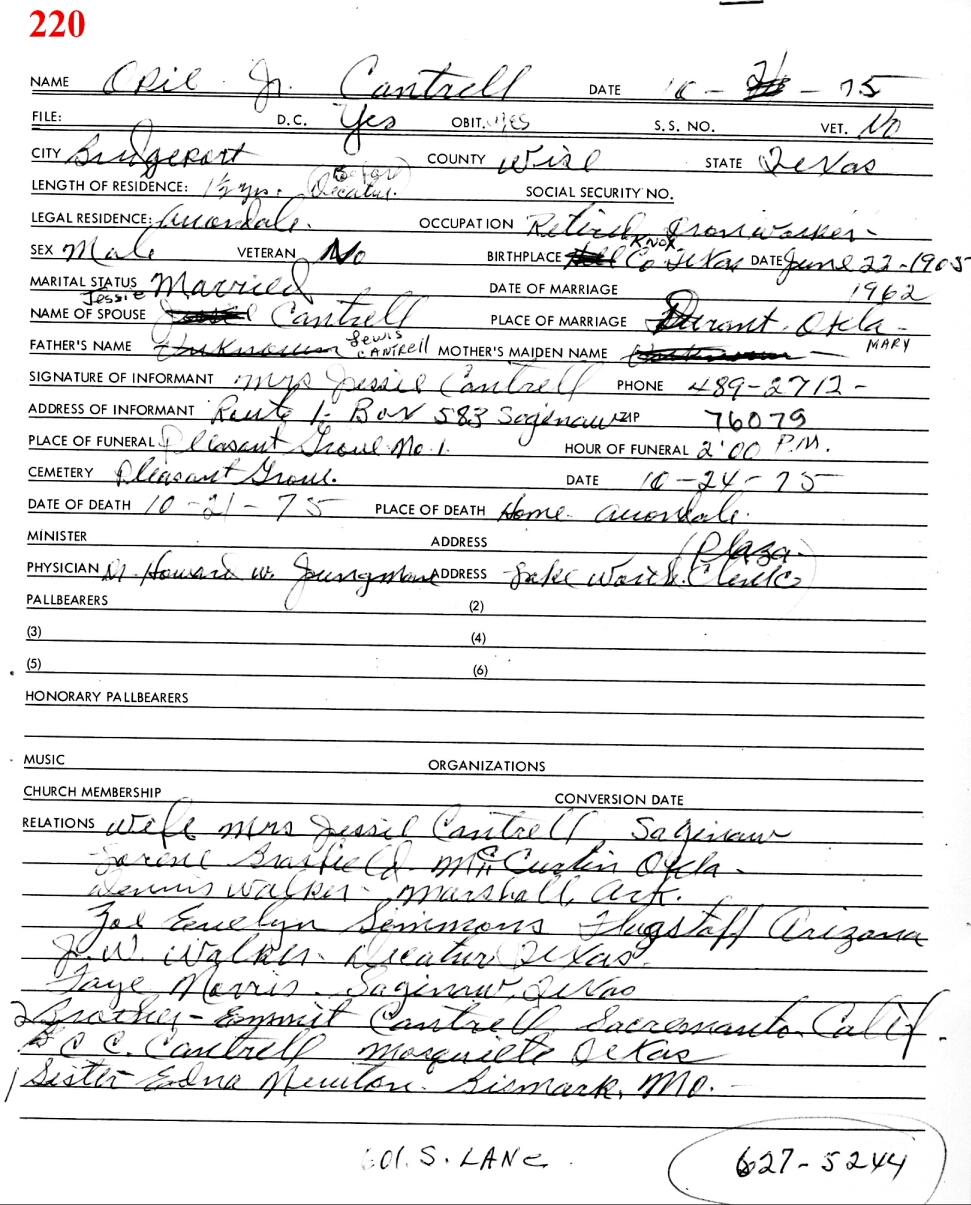 220
NAME Odie Jr. Cantrell DATE 10 - 21 - 75
FILE: D.C. Yes OBIT. yes S.S. NO. VET. No
CITY Bridgeport COUNTY Wise STATE Texas
LENGTH OF RESIDENCE: 1½ yrs. (Before Decatur.) SOCIAL SECURITY NO.
LEGAL RESIDENCE: Avondale. OCCUPATION Retired Ironworker-
SEX Male VETERAN No BIRTHPLACE KNOX Co Texas DATE June 22-1905
MARITAL STATUS Married DATE OF MARRIAGE 1962
NAME OF SPOUSE Jessie Cantrell PLACE OF MARRIAGE Durant. Okla-
FATHER'S NAME Unknown Lewis CANTRELL MOTHER'S MAIDEN NAME MARY
SIGNATURE OF INFORMANT Mrs Jessie Cantrell PHONE 489-2712-
ADDRESS OF INFORMANT Route 1- Box 583 Saginaw ZIP 76079
PLACE OF FUNERAL Pleasant Grove No. 1. HOUR OF FUNERAL 2:00 P.M.
CEMETERY Pleasant Grove. DATE 10-24-75
DATE OF DEATH 10-21-75 PLACE OF DEATH Home Avondale.
MINISTER ADDRESS (Plaza-
PHYSICIAN Dr. Howard W. Jungman ADDRESS Lake Worth. Clinic)
PALLBEARERS (2)
(3) (4)
(5) (6)
HONORARY PALLBEARERS
MUSIC ORGANIZATIONS
CHURCH MEMBERSHIP CONVERSION DATE
RELATIONS Wife Mrs Jessie Cantrell, Saginaw
Lorene Brasfield. McCurtin Okla-
Dennis Walker- Marshall, Ark.
Zoe Evelyn Simmons Flagstaff Arizona
J.W. Walker- Decatur Texas
Faye Morris. Saginaw, Texas
2 Brother- Emmit Cantrell Sacremanto. Calif.
C C. Cantrell Mosquiete Texas
1 Sister Edna Newton. Bismark, Mo.
601. S. LANE
627-5244